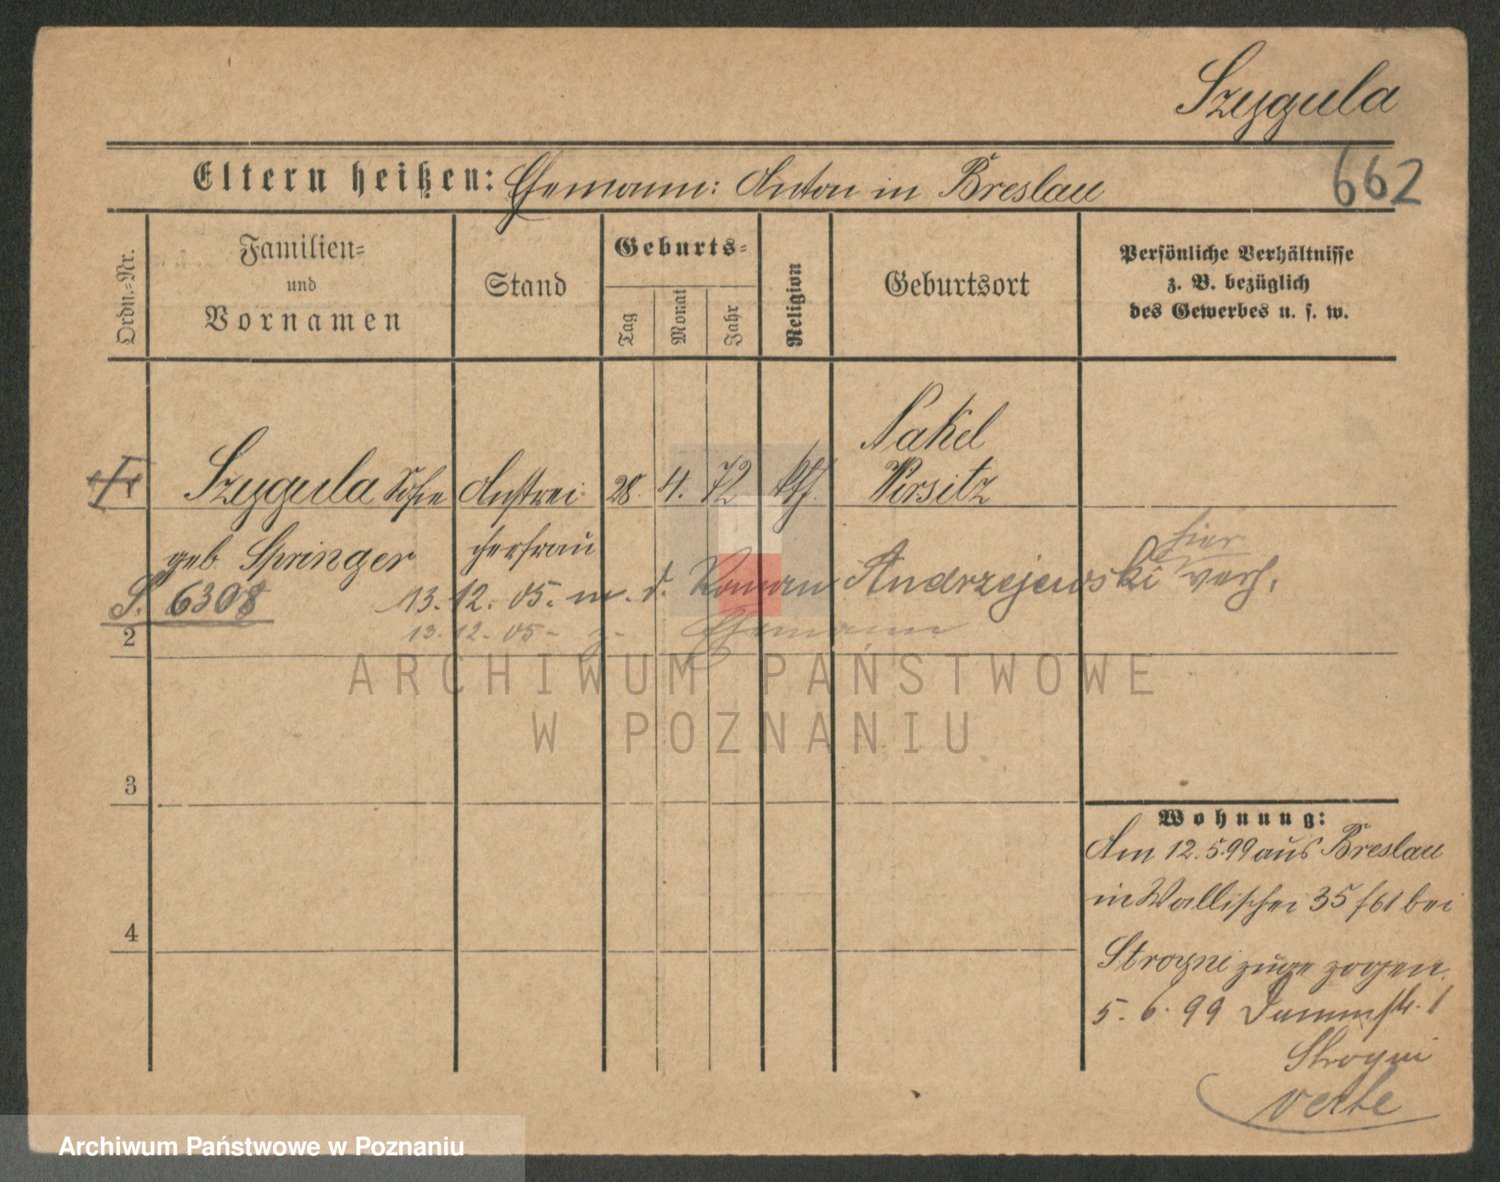 Szygula
662
Eltern heißen: Ehemann: Anton in Breslau
Ordn.-Nr.
Familien-
und
Vornamen
Stand
Geburts-
Tag
Monat
Jahr
Religion
Geburtsort
Persönliche Verhältnisse
z. B. bezüglich
des Gewerbes u. s. w.
Nakel
Szygula Sofie Anstrei- 28. 4. 72 kth. Wirsitz
geb Springer cherfrau
hier
S. 6308 13. 12. 05. m. d. Roman Andrzejewski verh.
2 13. 12. 05 - z. Ehemann
ARCHIWUM PAŃSTWOWE
W POZNANIU
3
Wohnung:
Am 12.5.99 aus Breslau
in Wallischei 35 bei
4
Stroyni zugezogen.
5. 6. 99 Dammstr. 1
Stroyni
verte
Archiwum Państwowe w Poznaniu